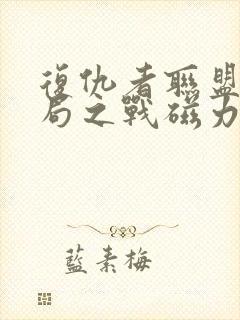 復仇者聯盟
局之戰磁力
藍素梅